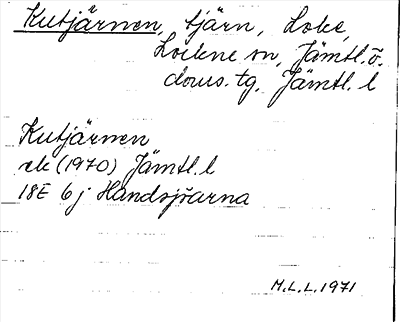 Kutjärnen, tjärn, Loke,
Lockne sn, Jämtl. ö.
doms. tg, Jämtl. l
Kutjärnen
rk (1970) Jämtl. l
18E 6j Handsjöarna
M.L.L. 1971